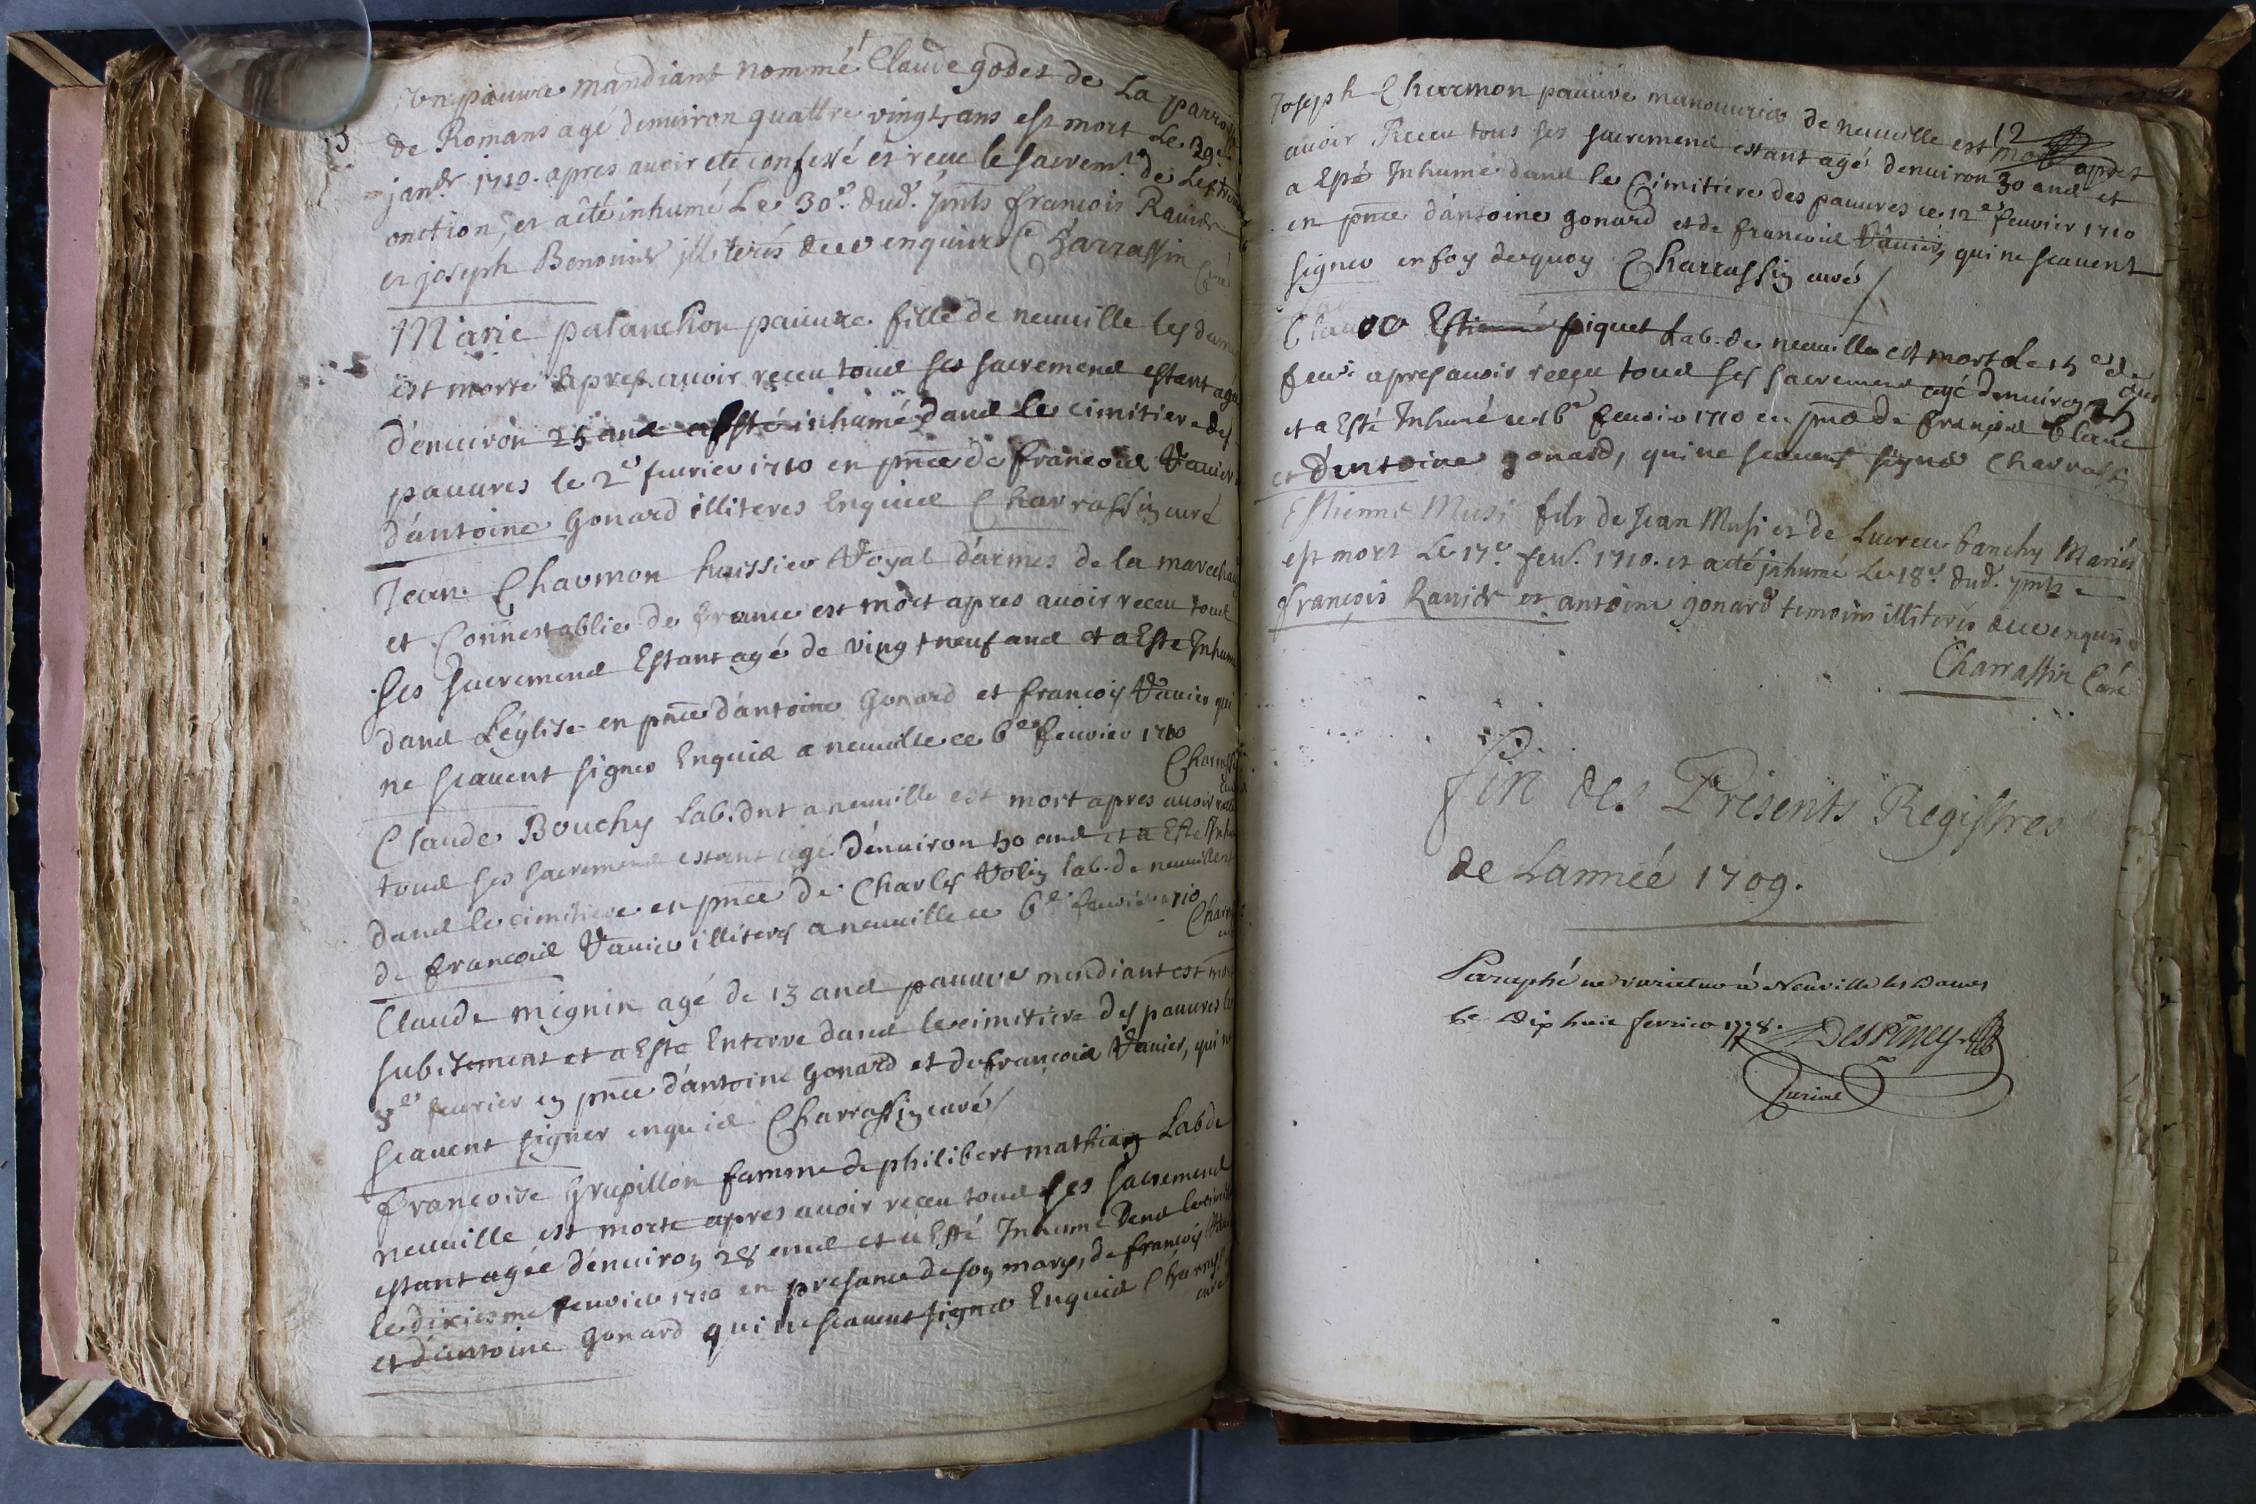 un pauvre mandiant nommé Claude godet de La parroisse
de Romans age denviron quattre vingts ans est mort Le 29e
janvr 1710. apres avoir eté confessé et reçue le sacremt de Lextreme
onction, et a été inhumé Le 30e dud. pnts francois Ravier
et joseph Benonier illiterés de ce enquis Charrassin Curé
Marie palanchon pauvre fille de neuville les dames
est morte apres avoir receu tous ses sacremens estant agée
d'environ 25 ans a Esté inhumé dans le cimitiere des
pauvres le 2e fevrier 1710 en pnce de francois Ravier
d'antoine Gonard illiteres Enquis Charrassin curé
Jean Charmon huissier Royal d'armes de la marecha
et Connestablie de france est mort apres avoir receu tous
ses sacremens Estant agé de vingt neuf ans et a Esté Inhumé
dans L'église en pnce d'antoine Gonard et francois Ravier qui
ne scavent signer Enquis a neuville ce 6e fevrier 1710
Charrassin
Claude Bouchy Lab. dnt a neuville est mort apres avoir receu
tous ses sacremens estant agé d'environ 50 ans et a Esté Inhu
dans le cimitiere en pnce de Charles Rolin lab. de neuville et
de francois Ravier illiteres a neuville ce 6e fevrier 1710
Charr
Claude mignin agé de 13 ans pauvre mendiant est mort
subitement et a Esté Enterre dans le cimitiere des pauvres le
8e fevrier en pnce d'antoine Gonard et de francois Ravier, qui ne
scavent signer enquis Charrassin curé
francoise Grapillon famme de philibert mathieu Lab de
neuville est morte apres avoir receu tous ses sacremens
estant agée d'environ 28 ans et a Esté Inhumé Dans le cimit
le dixiesme fevrier 1710 en presance de son mary, de françois
et d'antoine Gonard qui ne scavent signer Enquis Charrass
curé
12
Joseph Charmon pauvre manouvrier de neuville est mort apres
avoir Receu tous ses sacremens estant agé denviron 30 ans et
a Esté Inhumé dans le Cimitiere des pauvres ce 12e fevrier 1710
en pnce d'antoine gonard et de francois Ravier, qui ne scavent
signer en foy de quoy Charrassin curé
Claude Estienne piquet Lab. de neuville est mort le 15e de
fevr. apres avoir receu tous ses sacremens agé denviron
et a Esté Inhumé ce 16e fevrier 1710 en pnce de françois blanc
et d'antoine gonard, qui ne scavent signer Charrassin
Estienne Musi fils de Jean Musi et de Lucrece banchy Mariés
est mort Le 17e fevr. 1710. et a eté jnhumé Le 18e dud. pnts
françois Ravier et antoine gonard temoins illiterés de ce enquis
Charrassin Curé
fin des Présents Registres
de Lannéé 1709.
Paraphé ne varietur à Neuville les Dames
ce dix huit fevrier 1778. Despiney